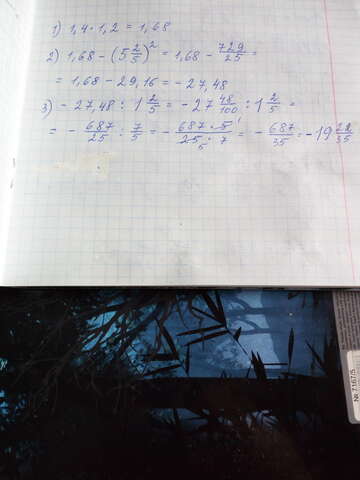 1) 1,4 · 1,2 = 1,68
2) 1,68 - (5 2/5)² = 1,68 - 729/25 =
= 1,68 - 29,16 = - 27,48
3) - 27,48 : 1 2/5 = - 27 48/100 : 1 2/5 =
= - 687/25 : 7/5 = - 687 · 5 1/25 5 · 7 = - 687/35 = - 19 22/35
№ 7167/5